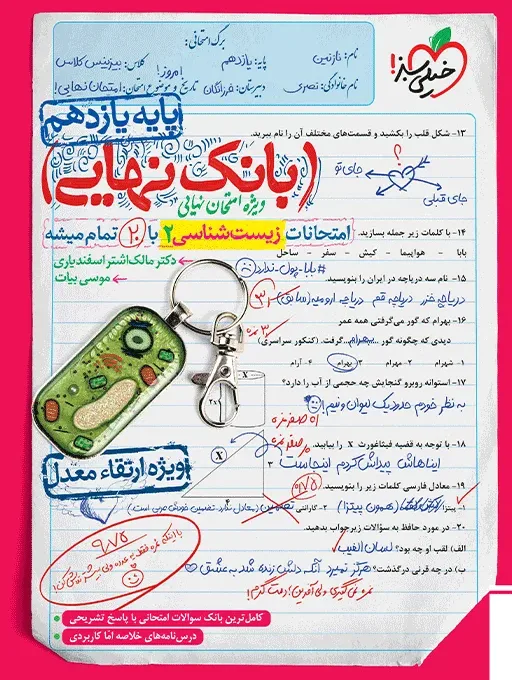 خیلی سبز!
برگ امتحانی:
نام: نازنین
پایه: یازدهم
کلاس: بیزینس کلاس
نام خانوادگی: نصری
دبیرستان: فرزانگان
تاریخ و موضوع امتحان: امتحان نهایی!
امروز!
پایه یازدهم
۱۳- شکل قلب را بکشید و قسمت‌های مختلف آن را نام ببرید.
(بانک نهایی)
؟
جای تو
جای قبلی
ویژه امتحان نهایی
امتحانات زیست‌شناسی ۲ با ۲۰ تمام میشه
۱۴- با کلمات زیر جمله بسازید.
بابا - هواپیما - کیش - سفر - ساحل
دکتر مالک‌اشتر اسفندیاری
موسی بیات
#بابا-پول-ندارد
۱۵- نام سه دریاچه در ایران را بنویسید.
دریاچه خزر دریاچه قم دریاچه ارومیه (سابق)
۱۶- بهرام که گور می‌گرفتی همه عمر
دیدی که چگونه گور ...بهرام... گرفت. (کنکور سراسری)
۱- شهرام ۲- مهرام ۳- بهرام ۴- آرام
۱۷- استوانه روبرو گنجایش چه حجمی از آب را دارد؟
به نظر خودم حدود یک لیوان و نیم!
X
۲x۱
ویژه ارتقاء معدل
۱۸- با توجه به قضیه فیثاغورث X را بیابید.
X
اینهاش پیداش کردم اینجاست
۳
۴
۱۹- معادل فارسی کلمات زیر را بنویسید.
۰/۷۵
۱- پیتزا (همون پیتزا) ۲- گارانتی تضمین
۲۰- در مورد حافظ به سؤالات زیر جواب بدهید.
الف) لقب او چه بود؟ لسان الغیب
ب) در چه قرنی درگذشت؟ هرگز نمیرد آنکه دلش زنده شد به عشق
۹/۷۵
کامل‌ترین بانک سوالات امتحانی با پاسخ تشریحی
درس‌نامه‌های خلاصه امّا کاربردی